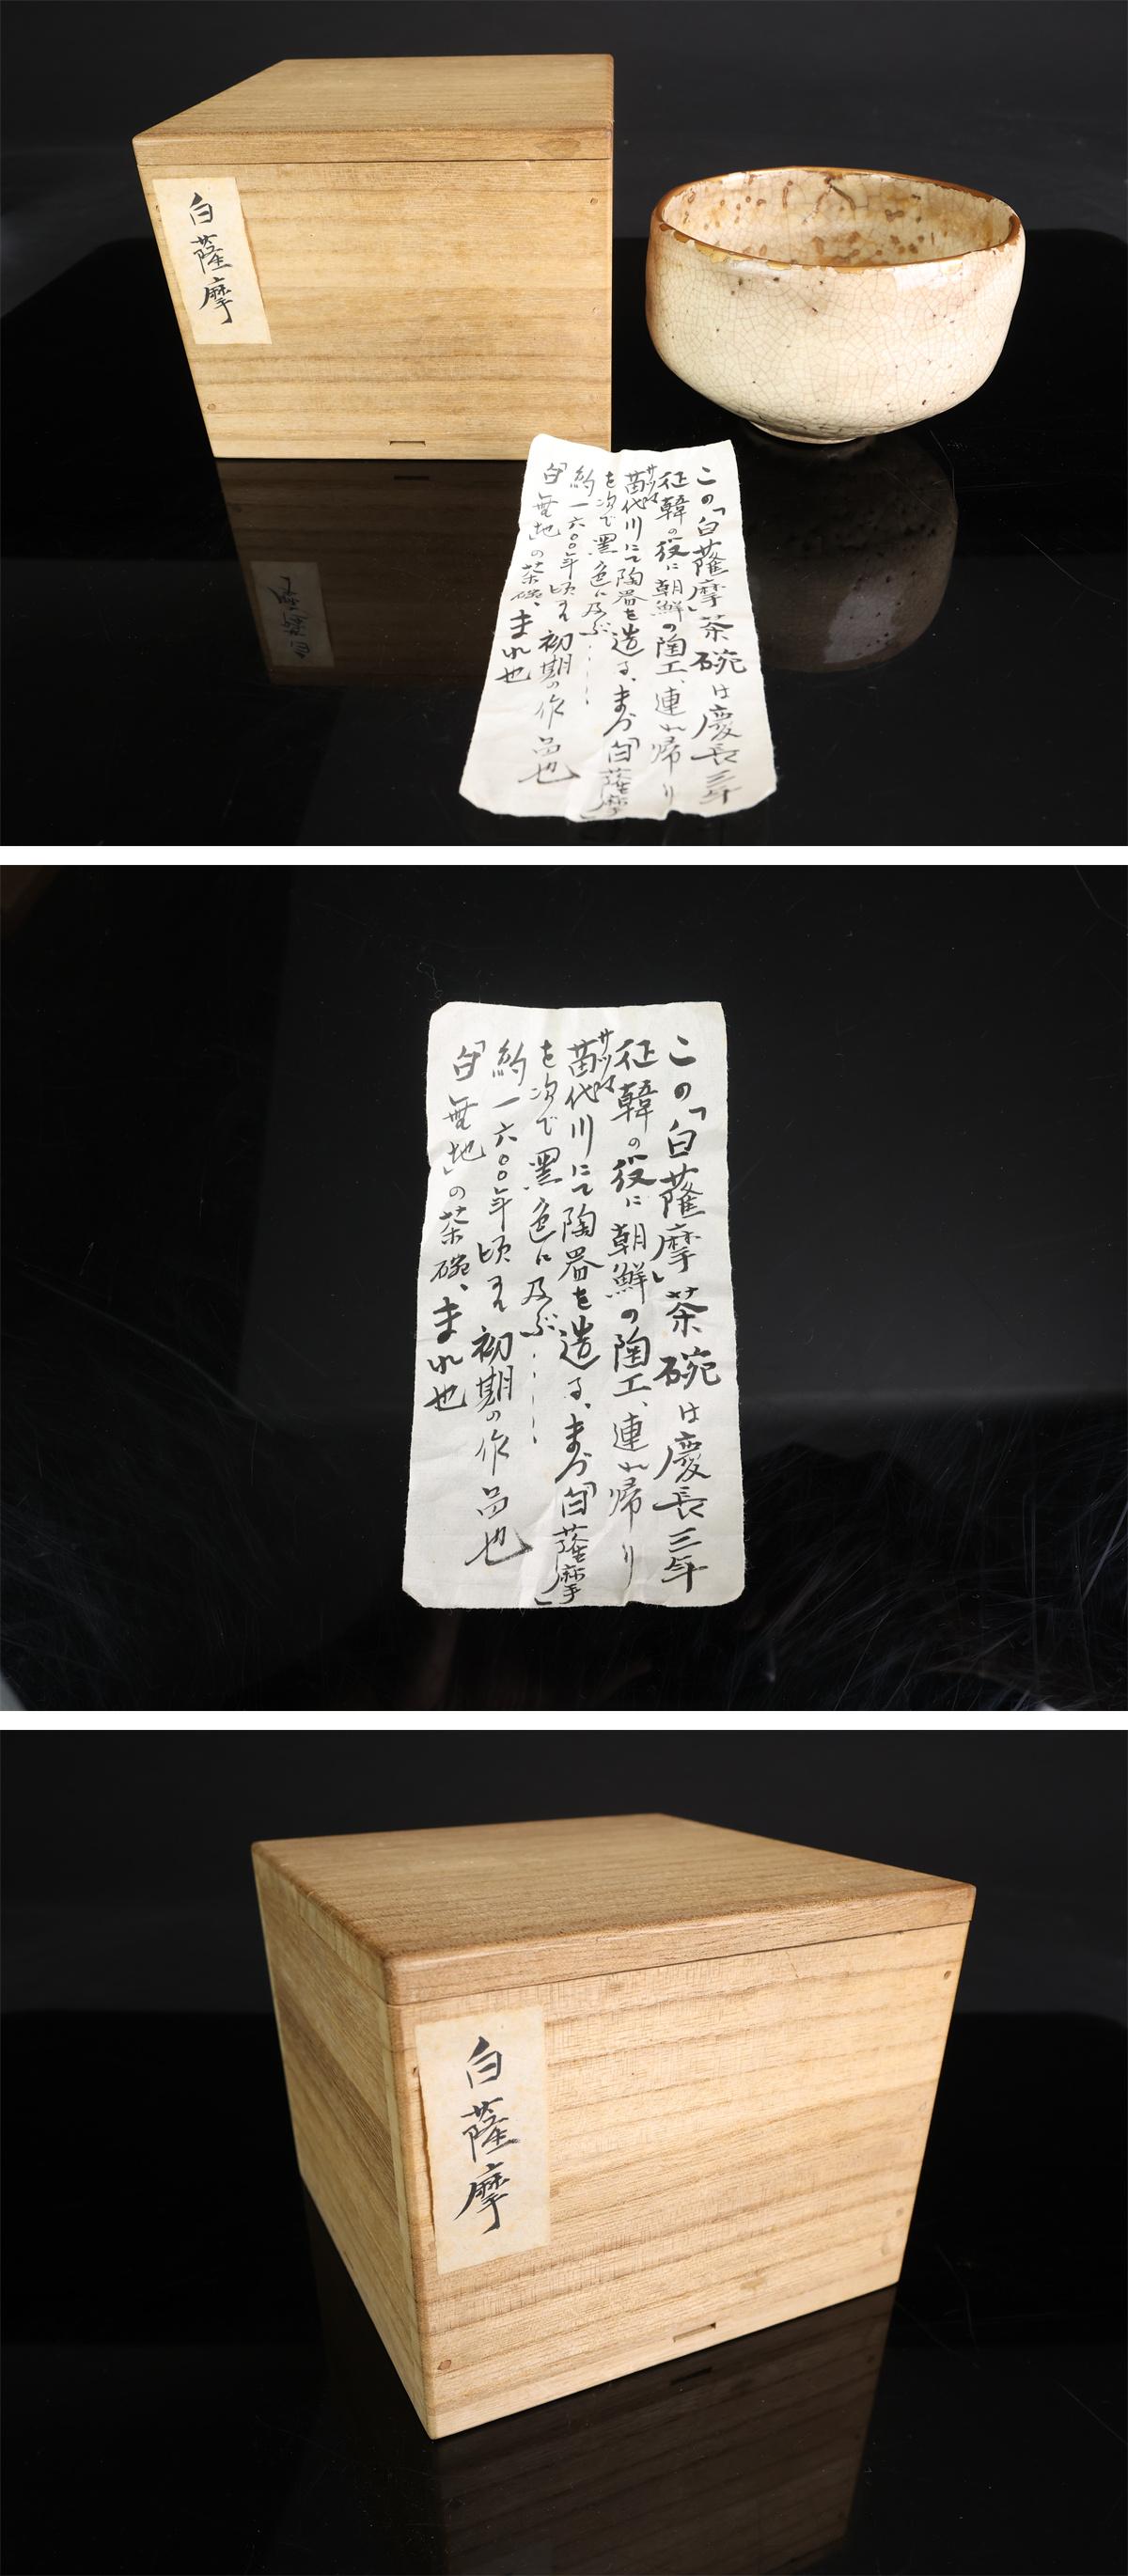 白薩摩
この「白薩摩」茶碗は慶長三年
征韓の役に朝鮮の陶工、連れ帰り
サツマ
苗代川にて陶器を造る、まづ「白薩摩」
を次で黒色に及ぶ・・・・
約一六〇〇年頃 初期の作品也
「白無地」の茶碗、まれ也
この「白薩摩」茶碗は慶長三年
征韓の役に朝鮮の陶工、連れ帰り
サツマ
苗代川にて陶器を造る、まづ「白薩摩」
を次で黒色に及ぶ・・・・
約一六〇〇年頃 初期の作品也
「白無地」の茶碗、まれ也
白薩摩